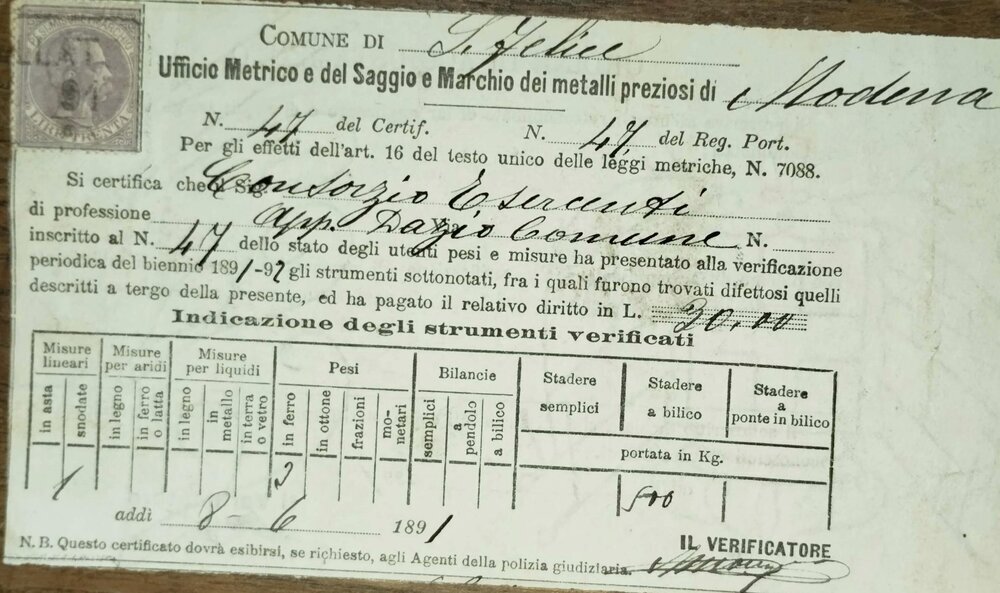 COMUNE DI S. Felice
Ufficio Metrico e del Saggio e Marchio dei metalli preziosi di Modena
LIRE TRENTA
N. 47 del Certif. N. 47 del Reg. Port.
Per gli effetti dell'art. 16 del testo unico delle leggi metriche, N. 7088.
Si certifica che il Sig. Consorzio Esercenti
di professione App. Dazio Comune Via N.
inscritto al N. 47 dello stato degli utenti pesi e misure ha presentato alla verificazione
periodica del biennio 1891-92 gli strumenti sottonotati, fra i quali furono trovati difettosi quelli
descritti a tergo della presente, ed ha pagato il relativo diritto in L. 30.00
Indicazione degli strumenti verificati
Misure lineari
Misure per aridi
Misure per liquidi
Pesi
Bilancie
Stadere semplici
Stadere a bilico
Stadere a ponte in bilico
in asta
snodate
in legno
in ferro o latta
in legno
in metallo
in terra o vetro
in ferro
in ottone
frazioni
monetari
semplici
a pendolo
a bilico
portata in Kg.
1 2 500
addì 8-6 1891
IL VERIFICATORE
N. B. Questo certificato dovrà esibirsi, se richiesto, agli Agenti della polizia giudiziaria.